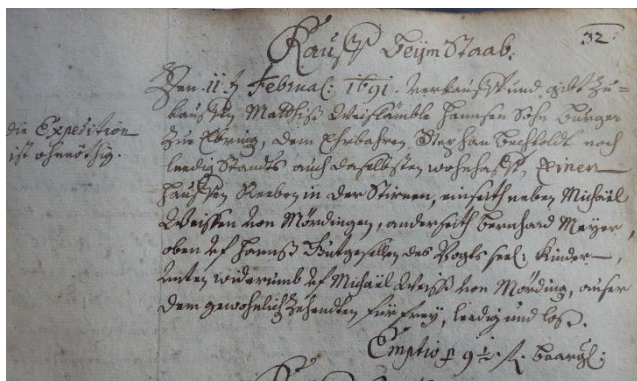 32
Kauff beÿm Staab.
Den 11.ten Februar: 1691. verkaufft und gibt zu=
kauffen Matthiß Weislämble Hannsen Sohn burger
zue Ebring, dem Ehrbahren Stephan Bechtoldt noch
leedig Standts auch daselbsten wohnhafft, Einen
hauffen Reeben in der Stirnen, einseith neben Michäel
Weissen von Mördingen, anderseith Bernhard Meyer,
oben uf Hannß des Vogts seel: Kinder,
unten widerumb uf Michäel Weiß von Mörding, ausser
dem gewohnlich Zehendten für freÿ, leedig und loß.
Emptio p 9½ fl. baargl:
die Expedition
ist ohnnöthig.